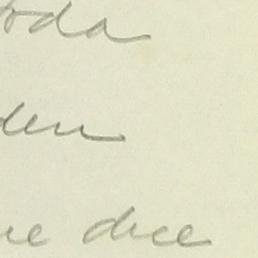 toda
den
ue dice